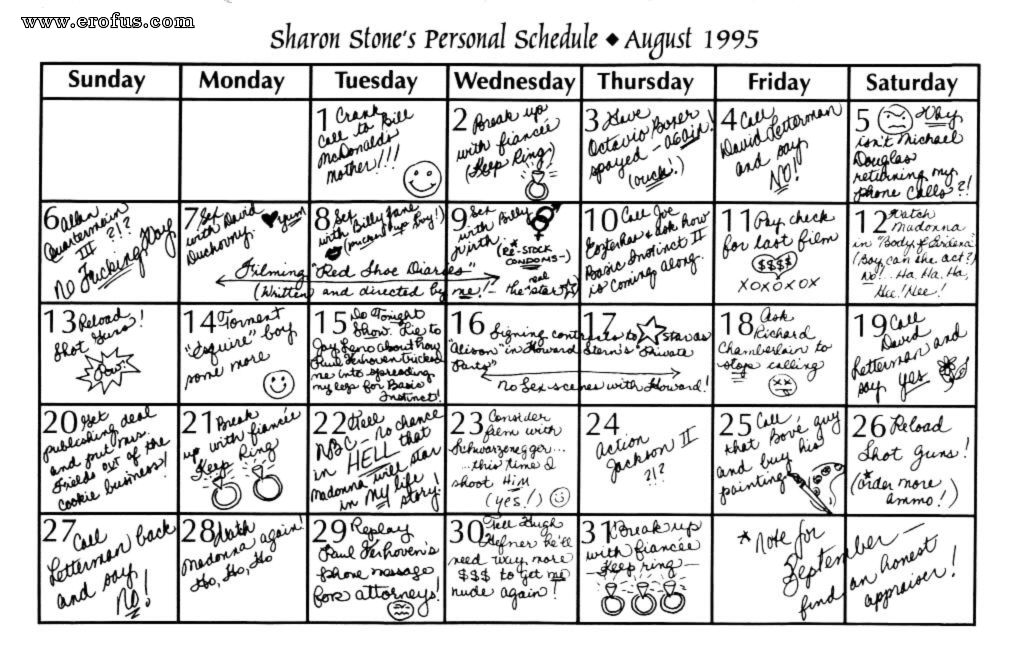 www.erofus.com
Sharon Stone's Personal Schedule ◆ August 1995
Sunday Monday Tuesday Wednesday Thursday Friday Saturday
1 Crank
call to Bill
McDonalds
mother!!!
2 Break up
with fianceé
(Keep Ring)
3 Have
Octavio Bozer
spayed - again!
(ouch!)
4 Call
David Letterman
and say
NO!
5 Why
isn't Michael
Douglas
returning my
phone calls?!
6 Allan
Quartermain
III ?!?
No Fucking Way
7 Sex
with David
Duchovny.
yum
8 Sex
with Billy Zane
(pucker up boy!)
9 Sex
with Billy
Wirth
(Re*-STOCK
CONDOMS-)
Filming "Red Shoe Diaries"
(Written and directed by me! - the real "star")
10 Call Joe
Eszterhas & ask how
Basic Instinct II
is coming along.
11 Pay check
for last film
$$$$
XOXOXOX
12 Watch
Madonna
in "Body of Evidence"
(Boy can she act?)
No! .. Ha, Ha, Ha,
Hee! Hee!
13 Reload
Shot Guns!
Pow!
14 Torment
"Esquire" boy
some more
15 Do Tonight
Show. Lie to
Jay Leno about how
Paul Verhoven tricked
me into spreading
my legs for Basic
Instinct!
16 Signing contracts to star as
17
"Alison" in Howard Stern's "Private
Parts"
No sex scenes with Howard!
18 Ask
Richard
Chamberlain to
stop calling
19 Call
David
Letterman and
say yes
20 Get
publishing deal
and put Mrs.
Fields out of the
cookie business!
21 Break
up with fianceé
Keep Ring
22 Tell
NBC - no chance
in HELL that
Madonna will star
in my life
story!
23 Consider
film with
Schwarzenegger...
...this time I
shoot HIM
(yes!)
24
Action
Jackson II
?!?
25 Call
that Bové guy
and buy his
painting
26 Reload
Shot Guns!
(*order more
ammo!)
27
Call
Letterman back
and say
NO!
28 Watch
Madonna again!
Ho, Ho, Ho
29 Replay
Paul Verhoven's
phone message
for attorneys!
30 Tell Hugh
Hefner he'll
need way more
$$$ to get me
nude again!
31 Break up
with fianceé
Keep ring -
* Note for
September -
find an honest
appraiser!